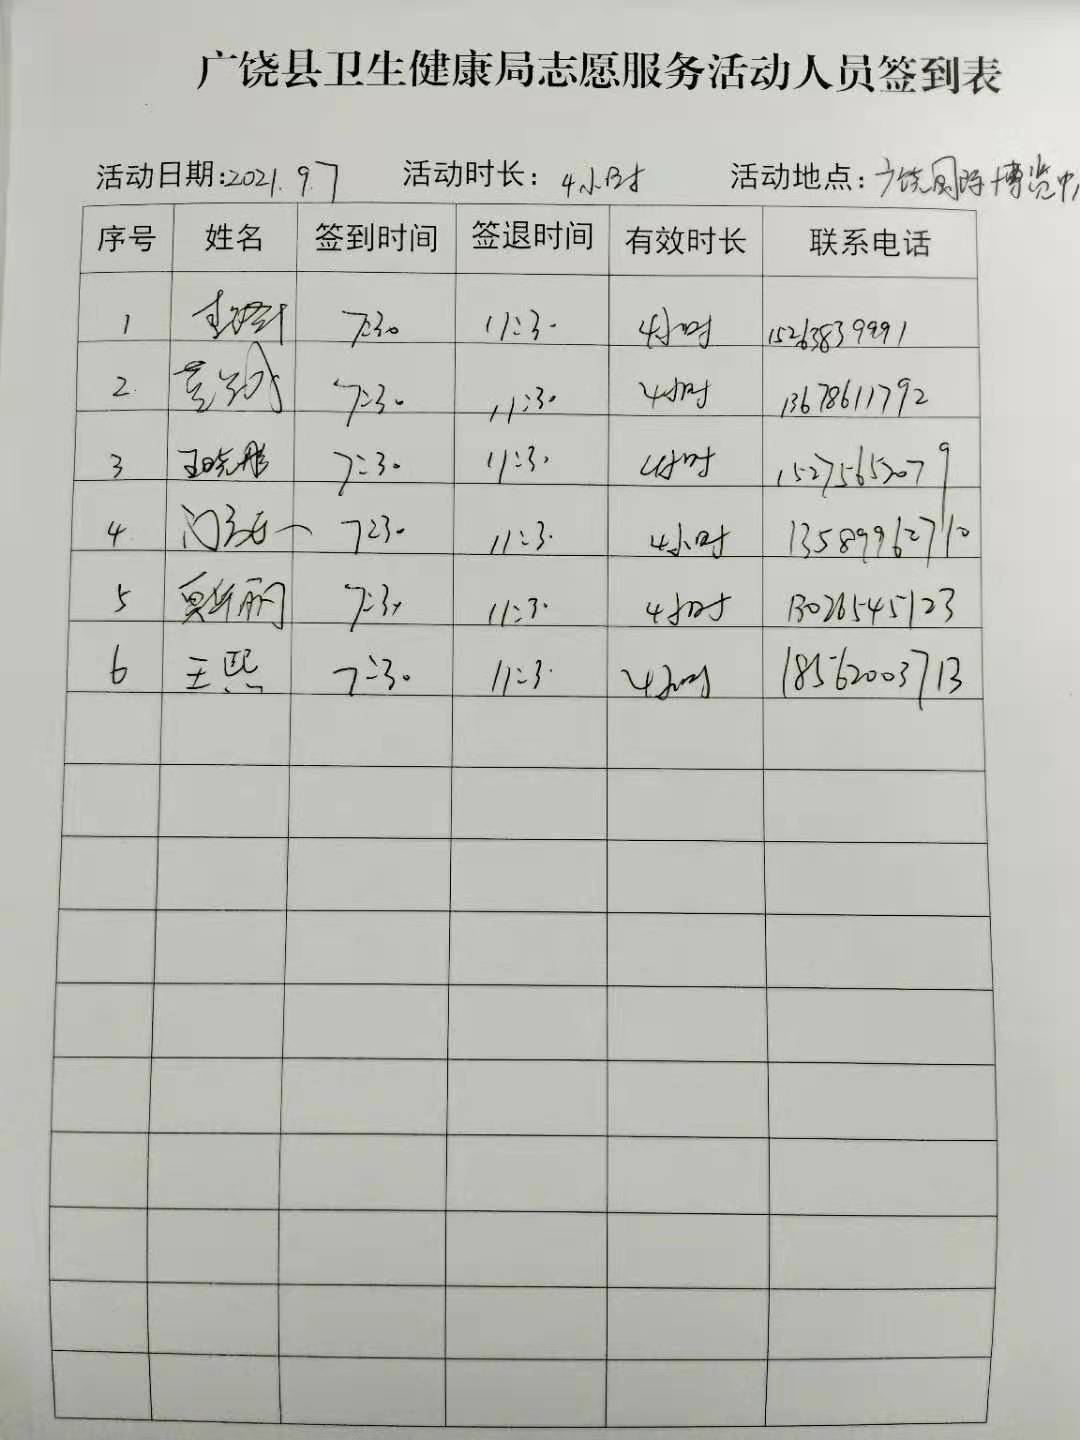 广饶县卫生健康局志愿服务活动人员签到表
活动日期:2021.9.7 活动时长: 4小时 活动地点: 广饶国际博览中
序号 姓名 签到时间 签退时间 有效时长 联系电话
1 7:30 11:30 4小时 15263839991
2. 7:30 11:30 4小时 13678611792
3 王晓彤 7:30 11:30 4小时 15275652079
4 7:30 11:30 4小时 13589962710
5 7:30 11:30 4小时 13026545123
6 王熙 7:30 11:30 4小时 18562003713